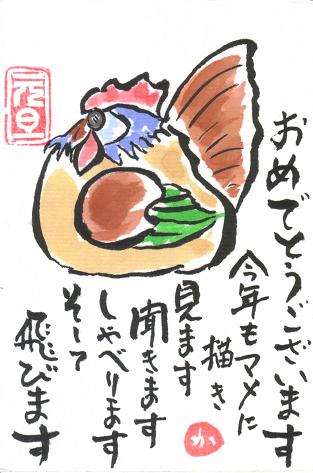 おめでとうございます
今年もマメに
描き
見ます
聞きます
しゃべります
そして
飛びます
か
元旦